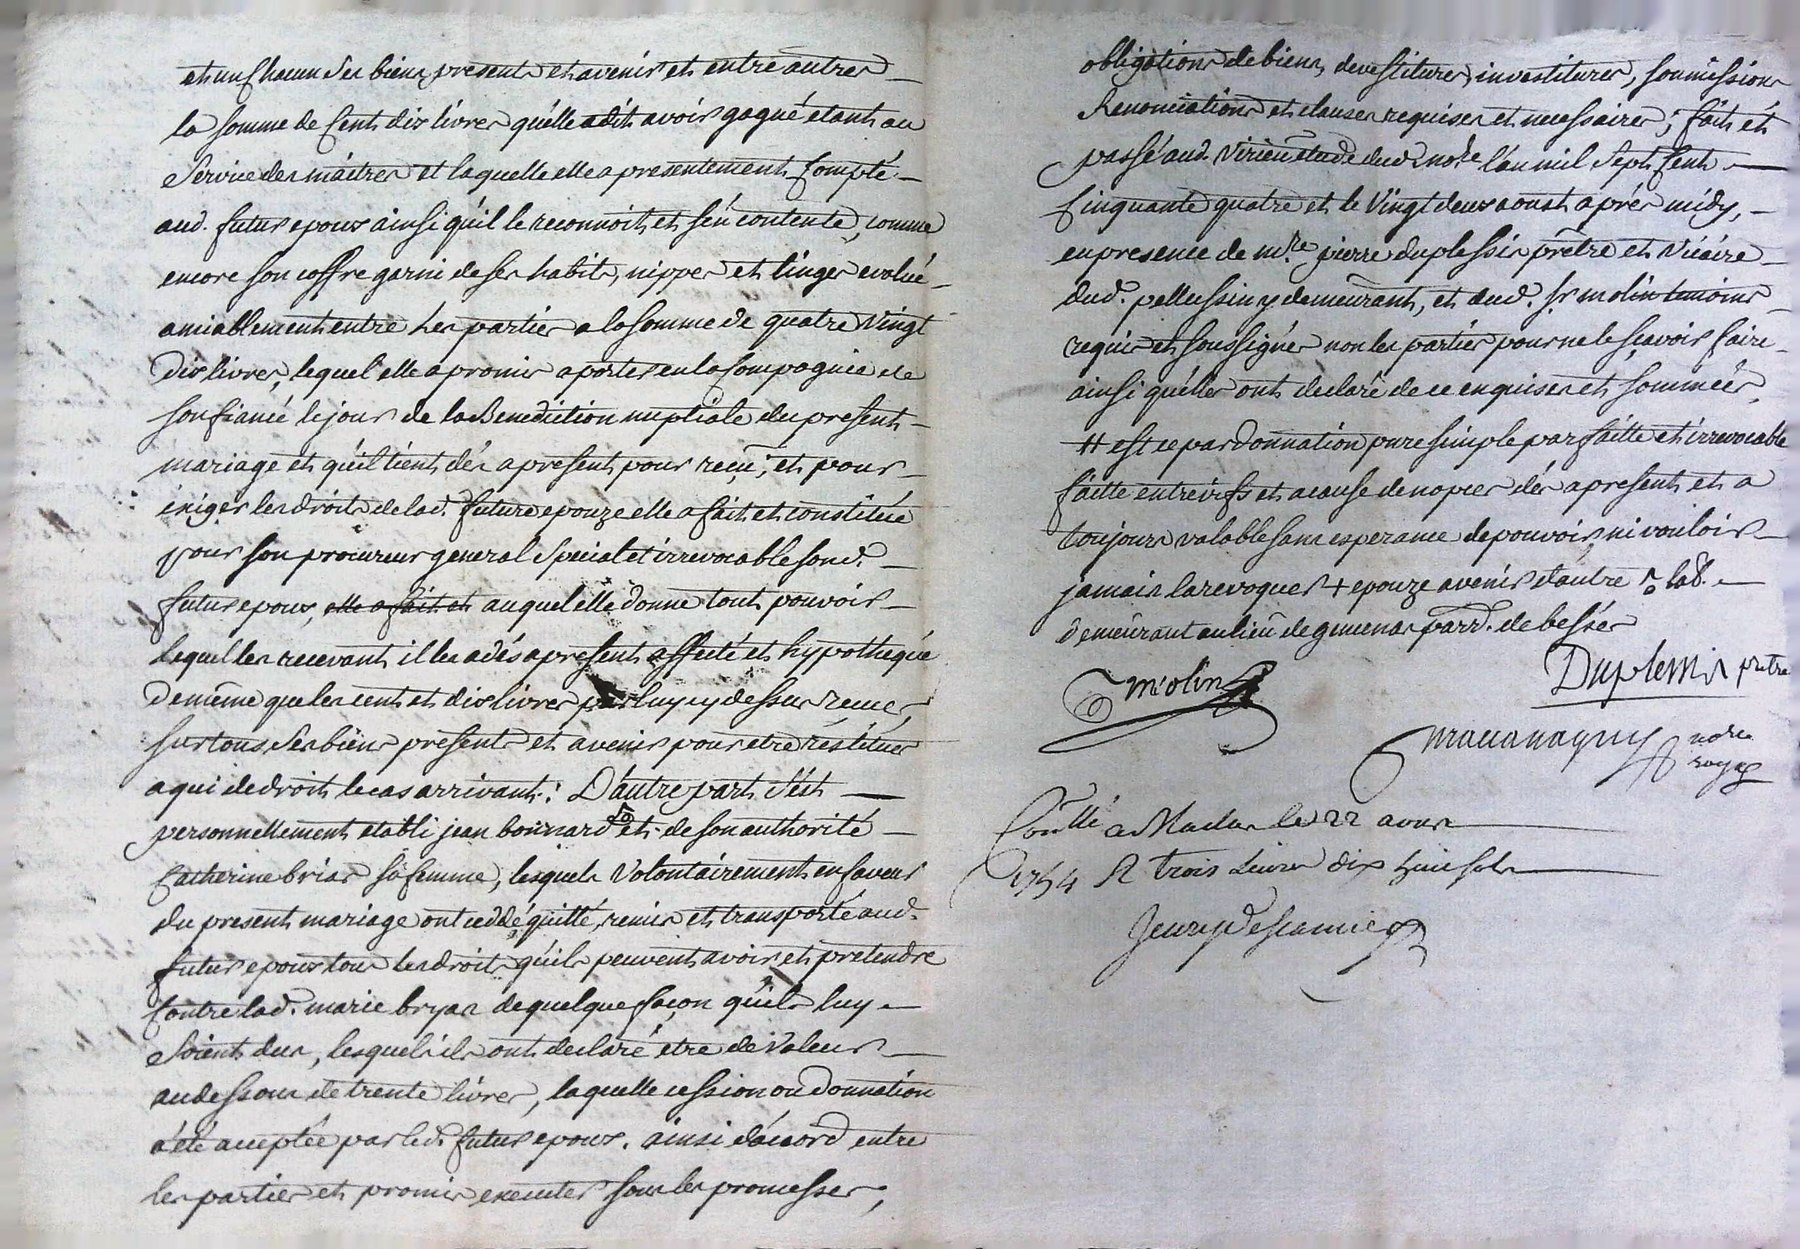 et un chacun ses biens presents et avenir et entre autres
la somme de cent dix livres qu'elle a dit avoir gagné etant au
service des maitres et laquelle elle a presentement compté
aud. futur epoux ainsi qu'il le reconnoit et s'en contente, comme
encore son coffre garni de ses habits, nippes et linges evalué
amiablement entre les parties a la somme de quatre vingt
dix livres, lequel elle a promis aporter en la compagnie de
son fiancé le jour de la Benediction nuptiale du present
mariage et qu'il tient dés apresent pour reçu; et pour
exiger les droits de lad. future epouze elle a fait et constitué
pour son procureur general special et irrevocable sond.
futur epoux, elle a fait et auquel elle donne tout pouvoir
lequel les recevant il les a dés apresent affecté et hypothequé
de même que les cent et dix livres par luy cy dessus reçues
sur tous ses biens presents et avenir pour etre restitués
a qui de droit le cas arrivant; D'autre part s'est
personnellement etabli jean bonnard et de son authorité
Catherine brias sa femme, lesquels volontairement en faveur
du present mariage ont ceddé, quitté, remis et transporté aud.
futur epoux tous les droits qu'ils peuvent avoir et pretendre
contre lad. marie bryas de quelque façon qu'ils luy
soient dus, lesquels ils ont declaré etre de valeur
au dessous de trente livres, laquelle cession ou donnation
a été acceptée par led. futur epoux. ainsi d'acord entre
les parties et promis executer sous les promesses,
obligations de biens, devestitures, investitures, soumissions
Renonciations et clauses requises et necessaires; fait et
passé aud. Virieu etude dud. nore l'an mil sept cent
cinquante quatre et le vingt deux aoust aprés midy,
en presence de mre. pierre duplessis prêtre et vicaire
dud. pellussin y demeurant, et dud. sr molin temoins
requis et soussignés non les parties pour ne le sçavoir faire
ainsi qu'elles ont declaré de ce enquises et sommées
# est ce par donnation pure simple parfaitte et irrevocable
faitte entre vifs et a cause de nopces dés apresent et a
toujours valable sans esperance de pouvoir ni vouloir
jamais la revoquer + epouze avenir d'autre
demeurant au lieu de parr. de bessés
Molin
Duplessis prêtre
nore
royal
Conllé a Maclas le 22 aoust
1754 R trois Livres dix huit sols